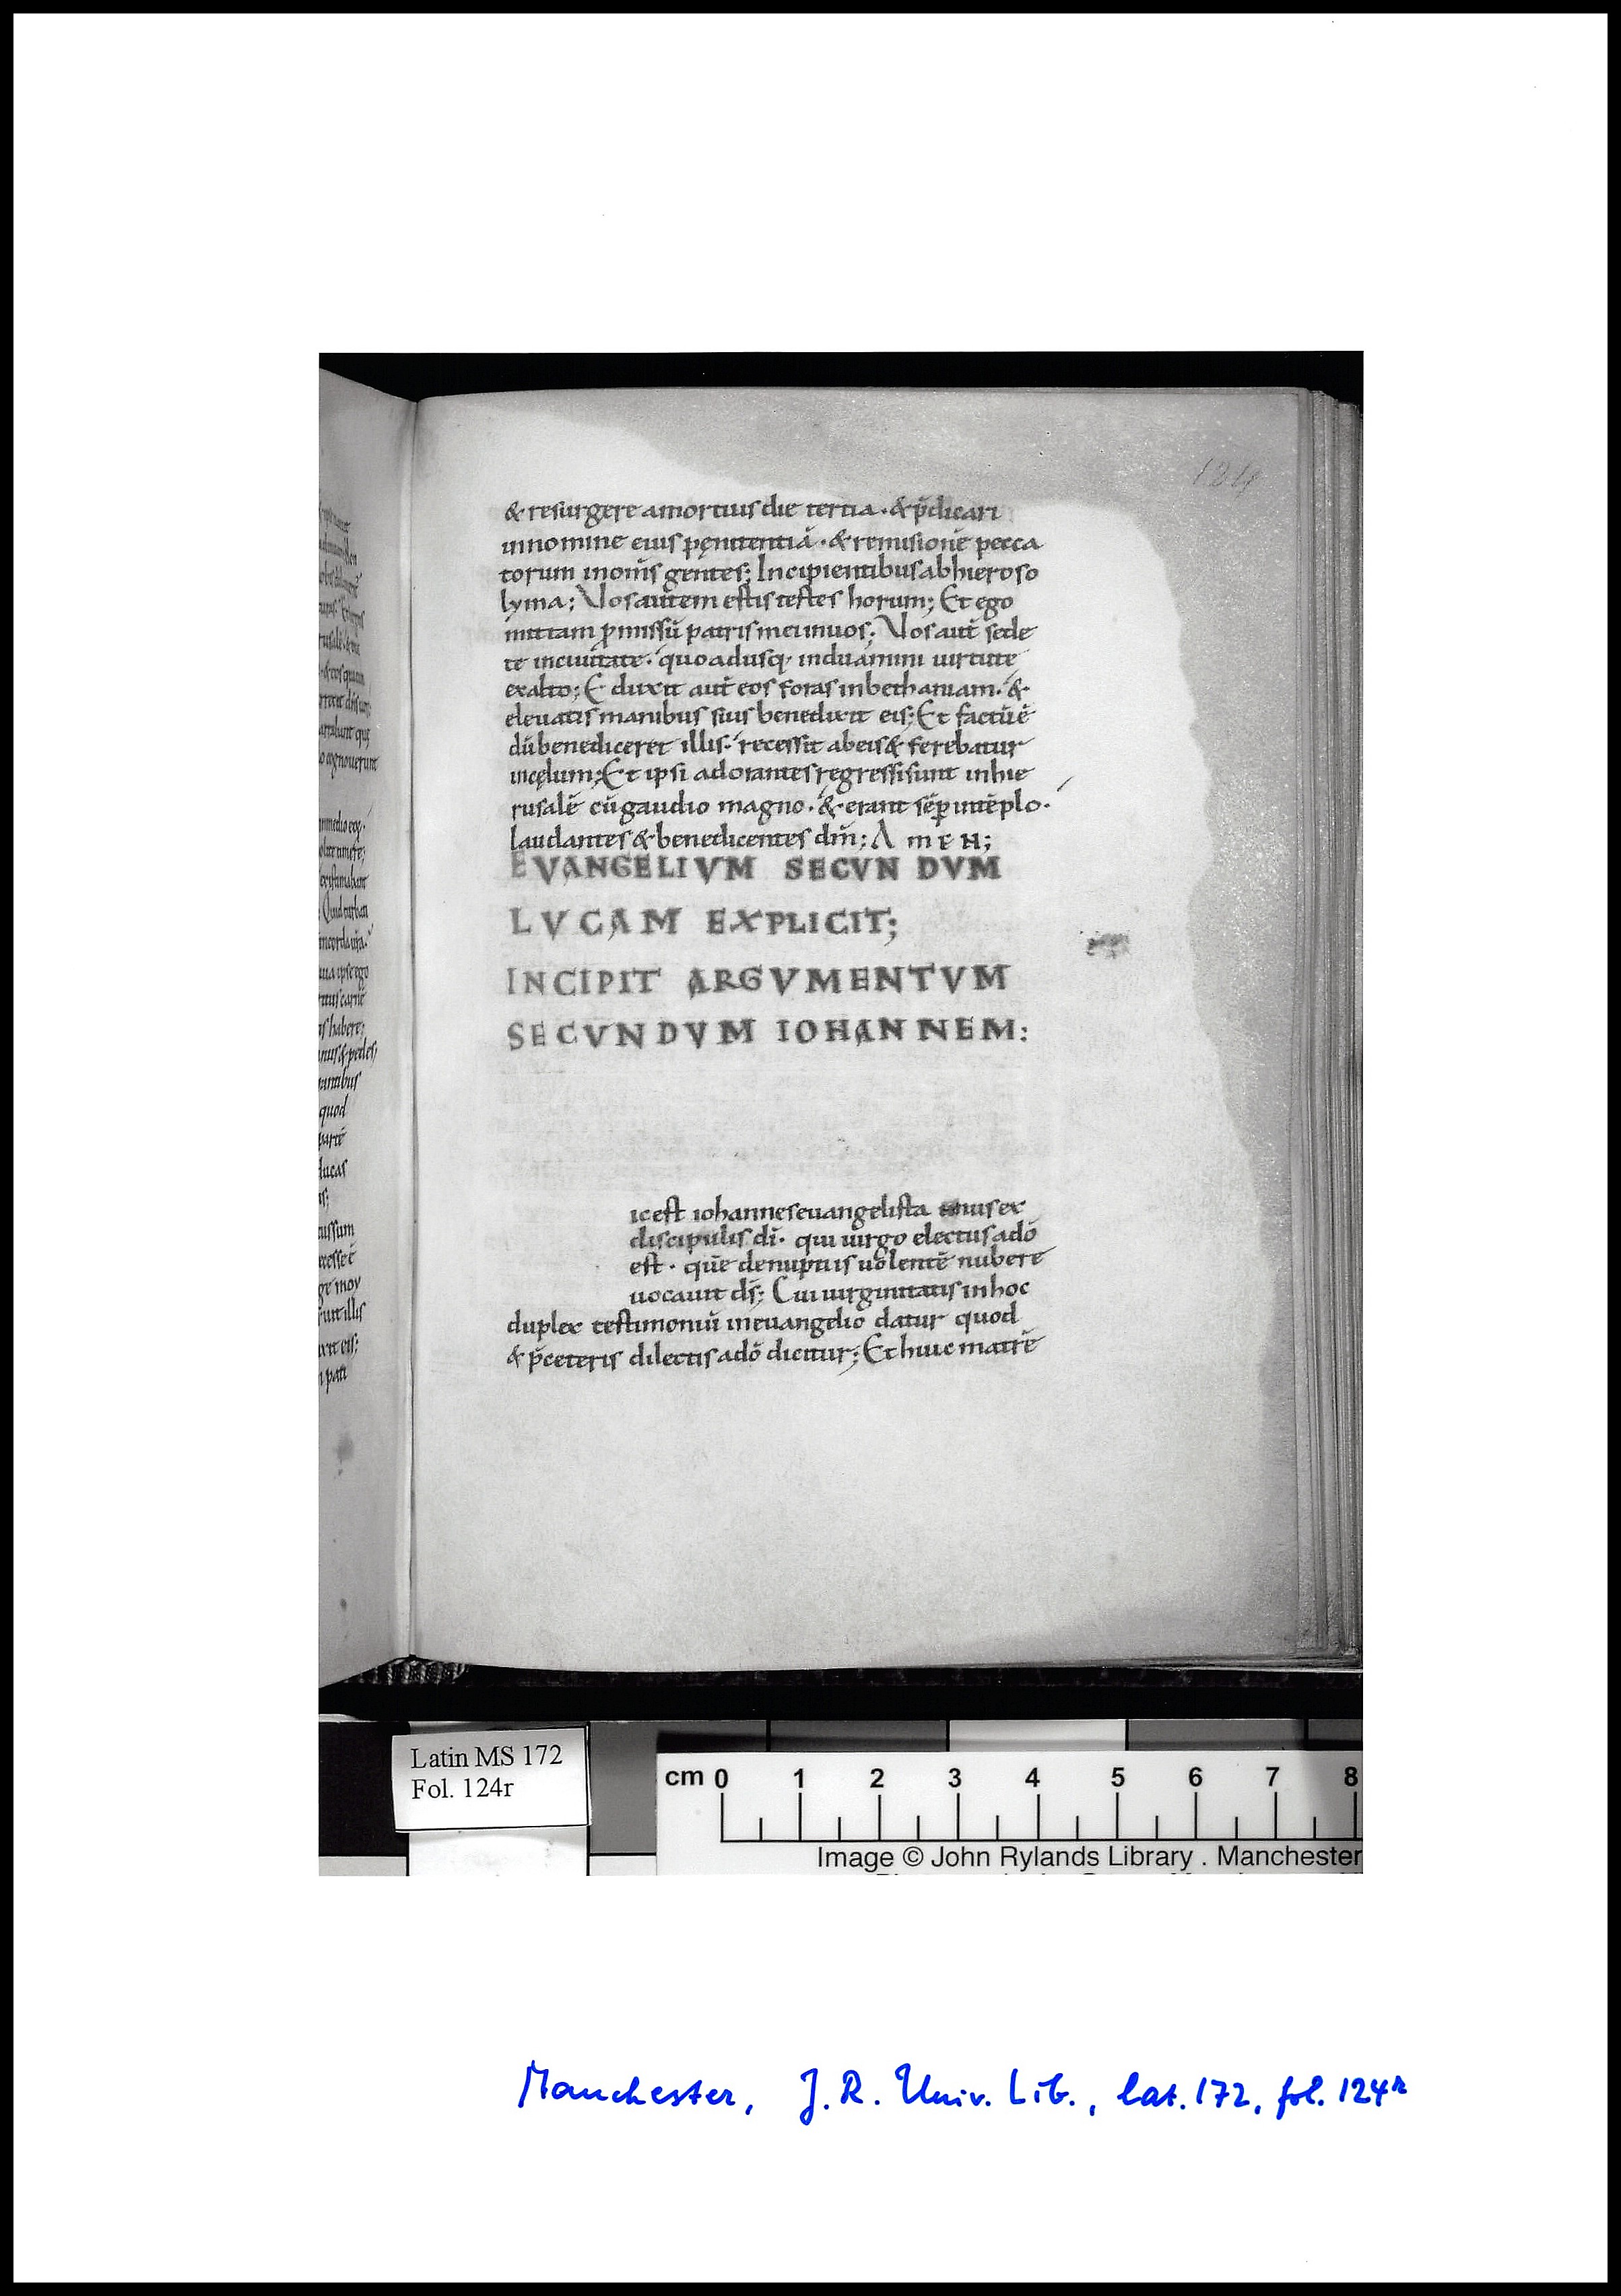 124
& resurgere amortuis die tertia · & p̄dicari
innomine eius pęnitentiā · & remisionē pecca
torum inom̄s gentes; Incipientibus abhieroso
lyma; Vos autem estis testes horum; Et ego
mittam ꝓmissū patris mei inuos; Vos aut̄ sede
te inciuitate · quo adusq· induamini uirtute
exalto; Eduxit aut̄ eos foras inbethaniam · &
eleuatis manibus suis benedixit eis; Et factū ē
dū benediceret illis · recessit abeis & ferebatur
incęlum; Et ipsi adorantes regressi sunt inhie
rusalē cū gaudio magno · & erant sēp intēplo ·
laudantes & benedicentes dm̄; AmEN;
EVANGELIVM SECVNDVM
LVCAM EXPLICIT;
INCIPIT ARGVMENTVM
SECVNDVM IOHANNEM:
ic est iohannes euangelista unus ex
discipulis di · qui uirgo electus adō
est · quē denuptiis uolentē nubere
uocauit ds̄; Cui uirginitatis inhoc
duplex testimoniū ineuangelio datur quod
& p̄ceteris dilectis adō dicitur; Et huic matrē
Latin MS 172
Fol. 124r
cm 0 1 2 3 4 5 6 7 8
Image © John Rylands Library . Manchester
Manchester, J. R. Univ. Lib., lat. 172, fol. 124r